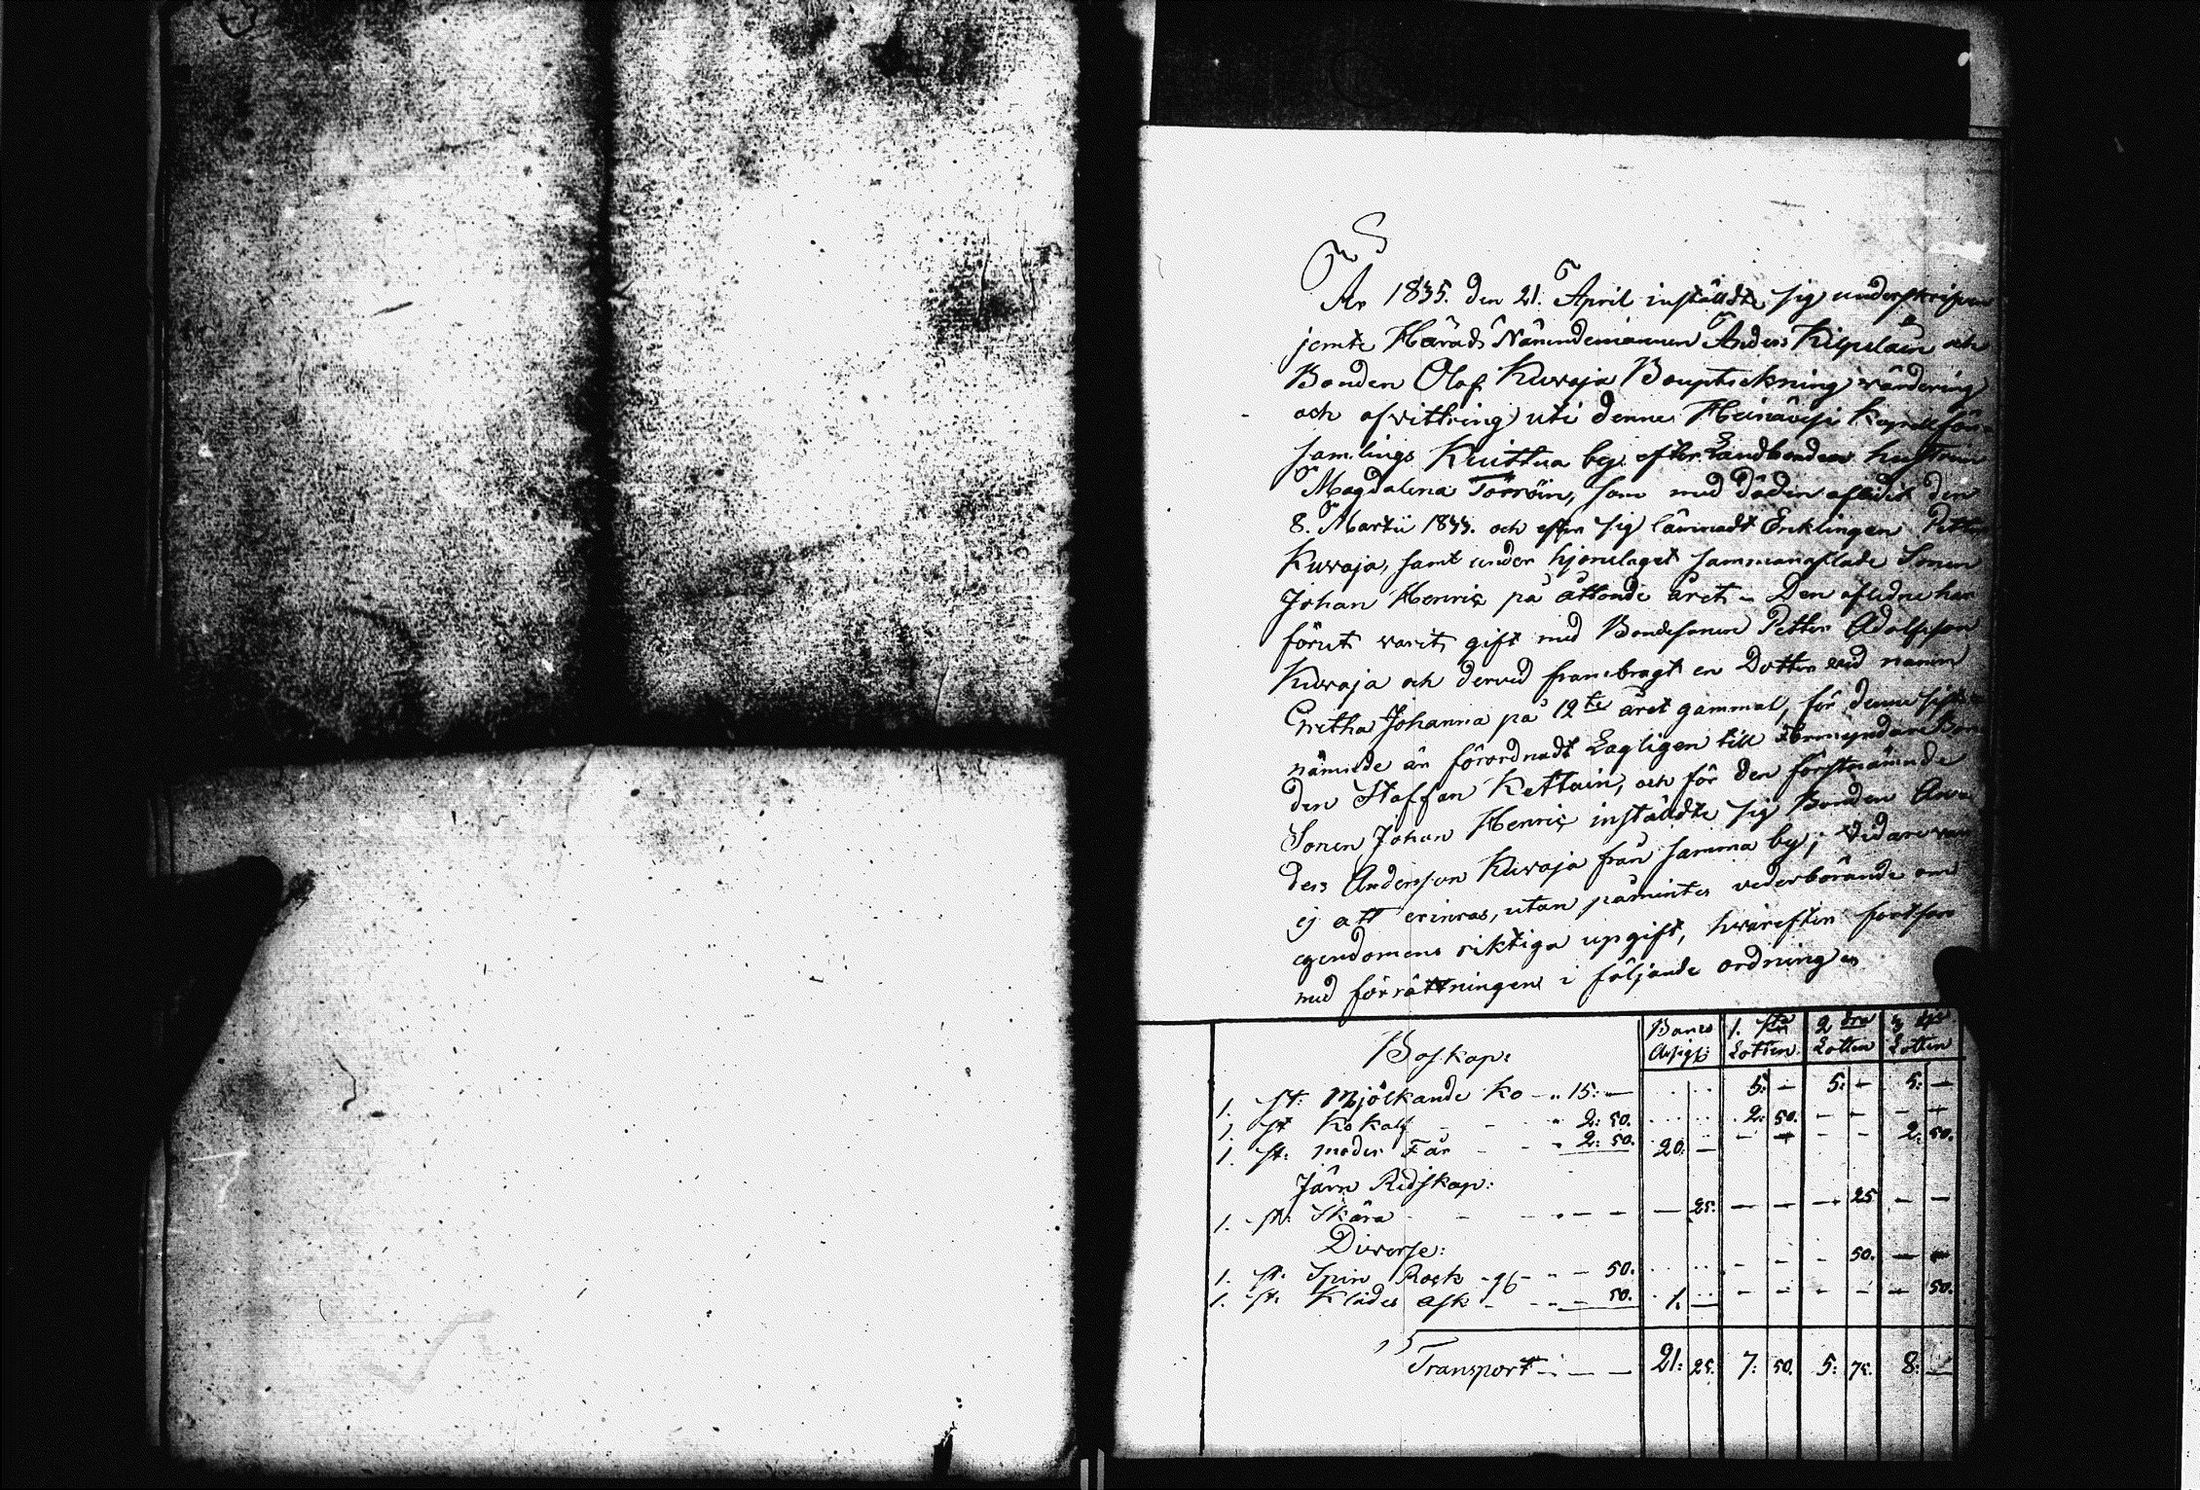 År 1835. den 21. April inställdte sig underskrifven
jemte Härads Nämndemannen Anders Kilpeläin och
Bonden Olof Kuvaja Bouptekning, värdering
och afvittring uti denne Heinävesi Kapellför-
samlings Kuittua by efter Landbonden hustrun
Magdalena Törröin, som med döden afledit den
8. Martii 1833. och efter sig lämnadt Enklingen Petter
Kuvaja, samt under hjonelaget sammanaflade Sonen
Johan Henric på åttonde året. Den aflidne har
förut varit gift med Bondesonen Petter Adolfsson
Kuvaja och dervid frambragt en Dotter vid namn
Gretha Johanna på 12te året gammal, för denne sist
nämnde är förordnadt Lagligen till Förmyndare Bon
den Staffan Kettuin, och för den förstnämnde
Sonen Johan Henric inställdte sig Bonden An
ders Andersson Kuvaja från samma by; vidare var
ej att erinras, utan påmintes vederbörande om
egendomens riktiga upgift, hvarefter fortfors
med förrättningen i följande ordning
Boskap: Banco Assigt: 1. sta Lotten 2 dra Lotten 3 dje Lotten
1. st: Mjölkande Ko - " 15: — 5: — 5: — 5: —
1. st Ko Kalf - - " 2: 50. 2: 50. — — — —
1. st: moder Får - - " 2: 50. 20: — — — — — 2: 50.
Järn Redskap:
1. st: Skära - - - — — — 25. — — — 25 — —
Diverse:
1. st. Spin Rock - " — 50. - - - 50. — —
1. st. Klädes ask - " — 50. 1. — - - - - — 50.
Transport — — — 21: 25. 7: 50. 5: 75. 8: —